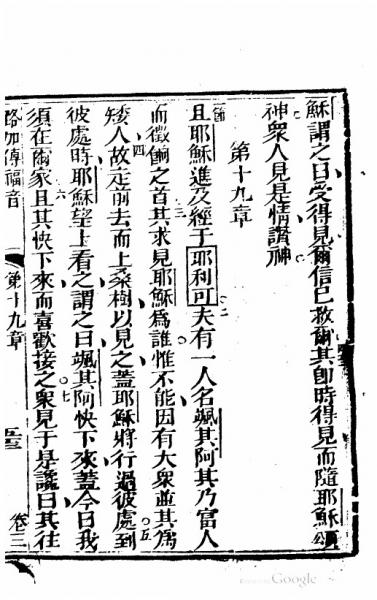 穌謂之曰受得見爾信已救爾其卽時得見而隨耶穌頌
神衆人見是情讚神
第十九章
節且耶穌進及經于耶利可二夫有一人名颯其阿其乃富人
而徵餉之首三其求見耶穌為誰惟不能因有大衆並其為
矮人四故走前去而上桑樹以見之蓋耶穌將行過彼處五到
彼處時耶穌望上看之謂之曰颯其阿快下來蓋今日我
須在爾家六且其快下來而喜歡接之七衆見于是讒曰其往
路加傳福音 第十九章 卷三
Google